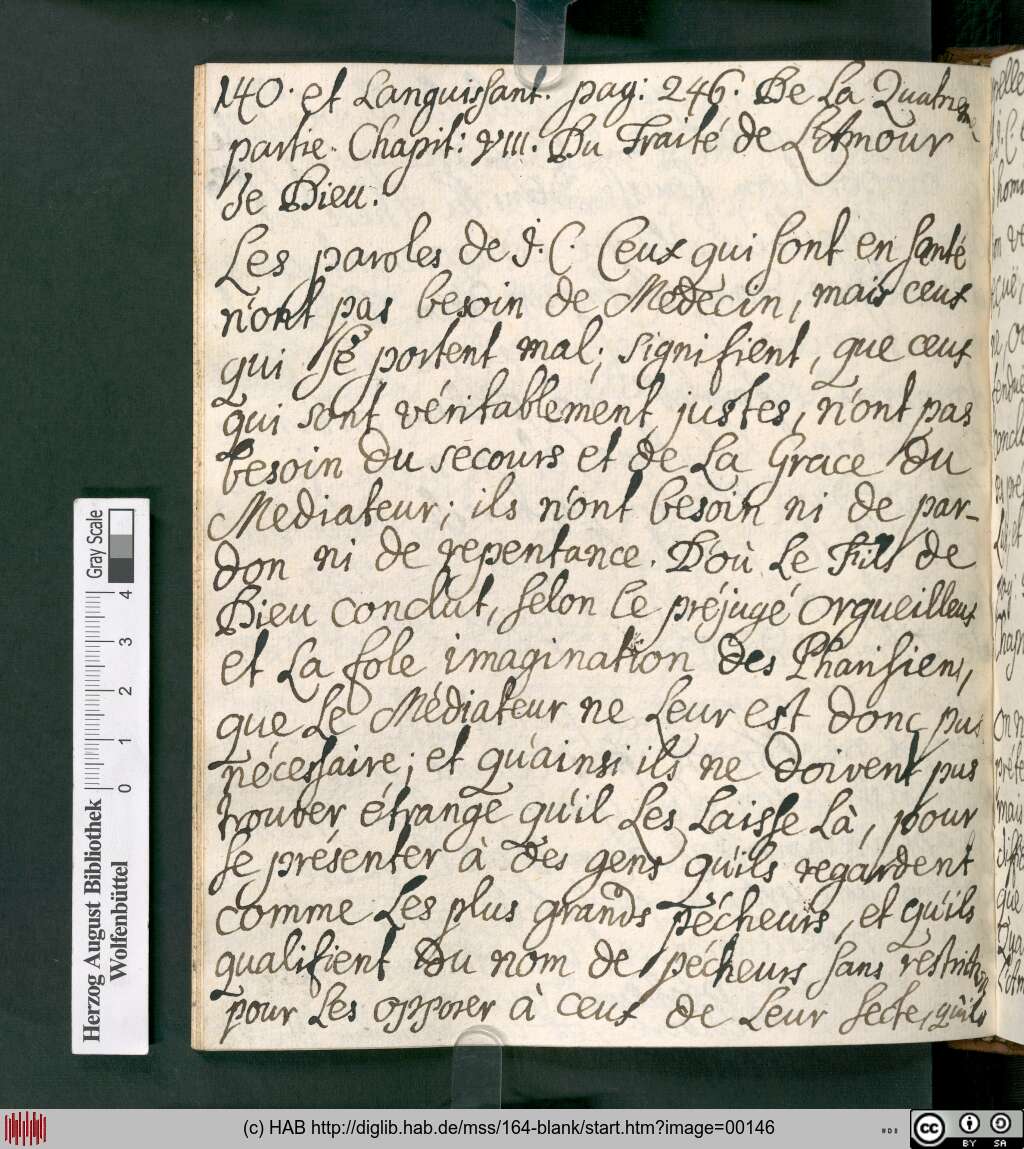 140. et Languissant. pag: 246. De La Quatriem
partie. Chapit: VIII. Du Traité de L'Amour
de Dieu.
Les paroles de J. C. Ceux qui sont en santé
n'ont pas besoin de Medecin, mais ceux
qui se portent mal; signifient, que ceux
qui sont véritablement justes, n'ont pas
besoin du secours et de La Grace du
Mediateur; ils n'ont besoin ni de par-
don ni de repentance. D'où Le Fils de
Dieu conclut, selon le préjugé orgueilleux
et La fole imagination des Pharisiens,
que Le Médiateur ne Leur est donc pas
nécessaire; et qu'ainsi ils ne doivent pas
trouver étrange qu'il Les Laisse Là, pour
se présenter à des gens qu'ils regardent
comme Les plus grands pécheurs, et qu'ils
qualifient du nom de pécheurs sans restriction
pour Les opposer à ceux de Leur secte, qu'ils
Gray Scale
4
3
2
1
0
Herzog August Bibliothek
Wolfenbüttel
(c) HAB http://diglib.hab.de/mss/164-blank/start.htm?image=00146
cc BY SA